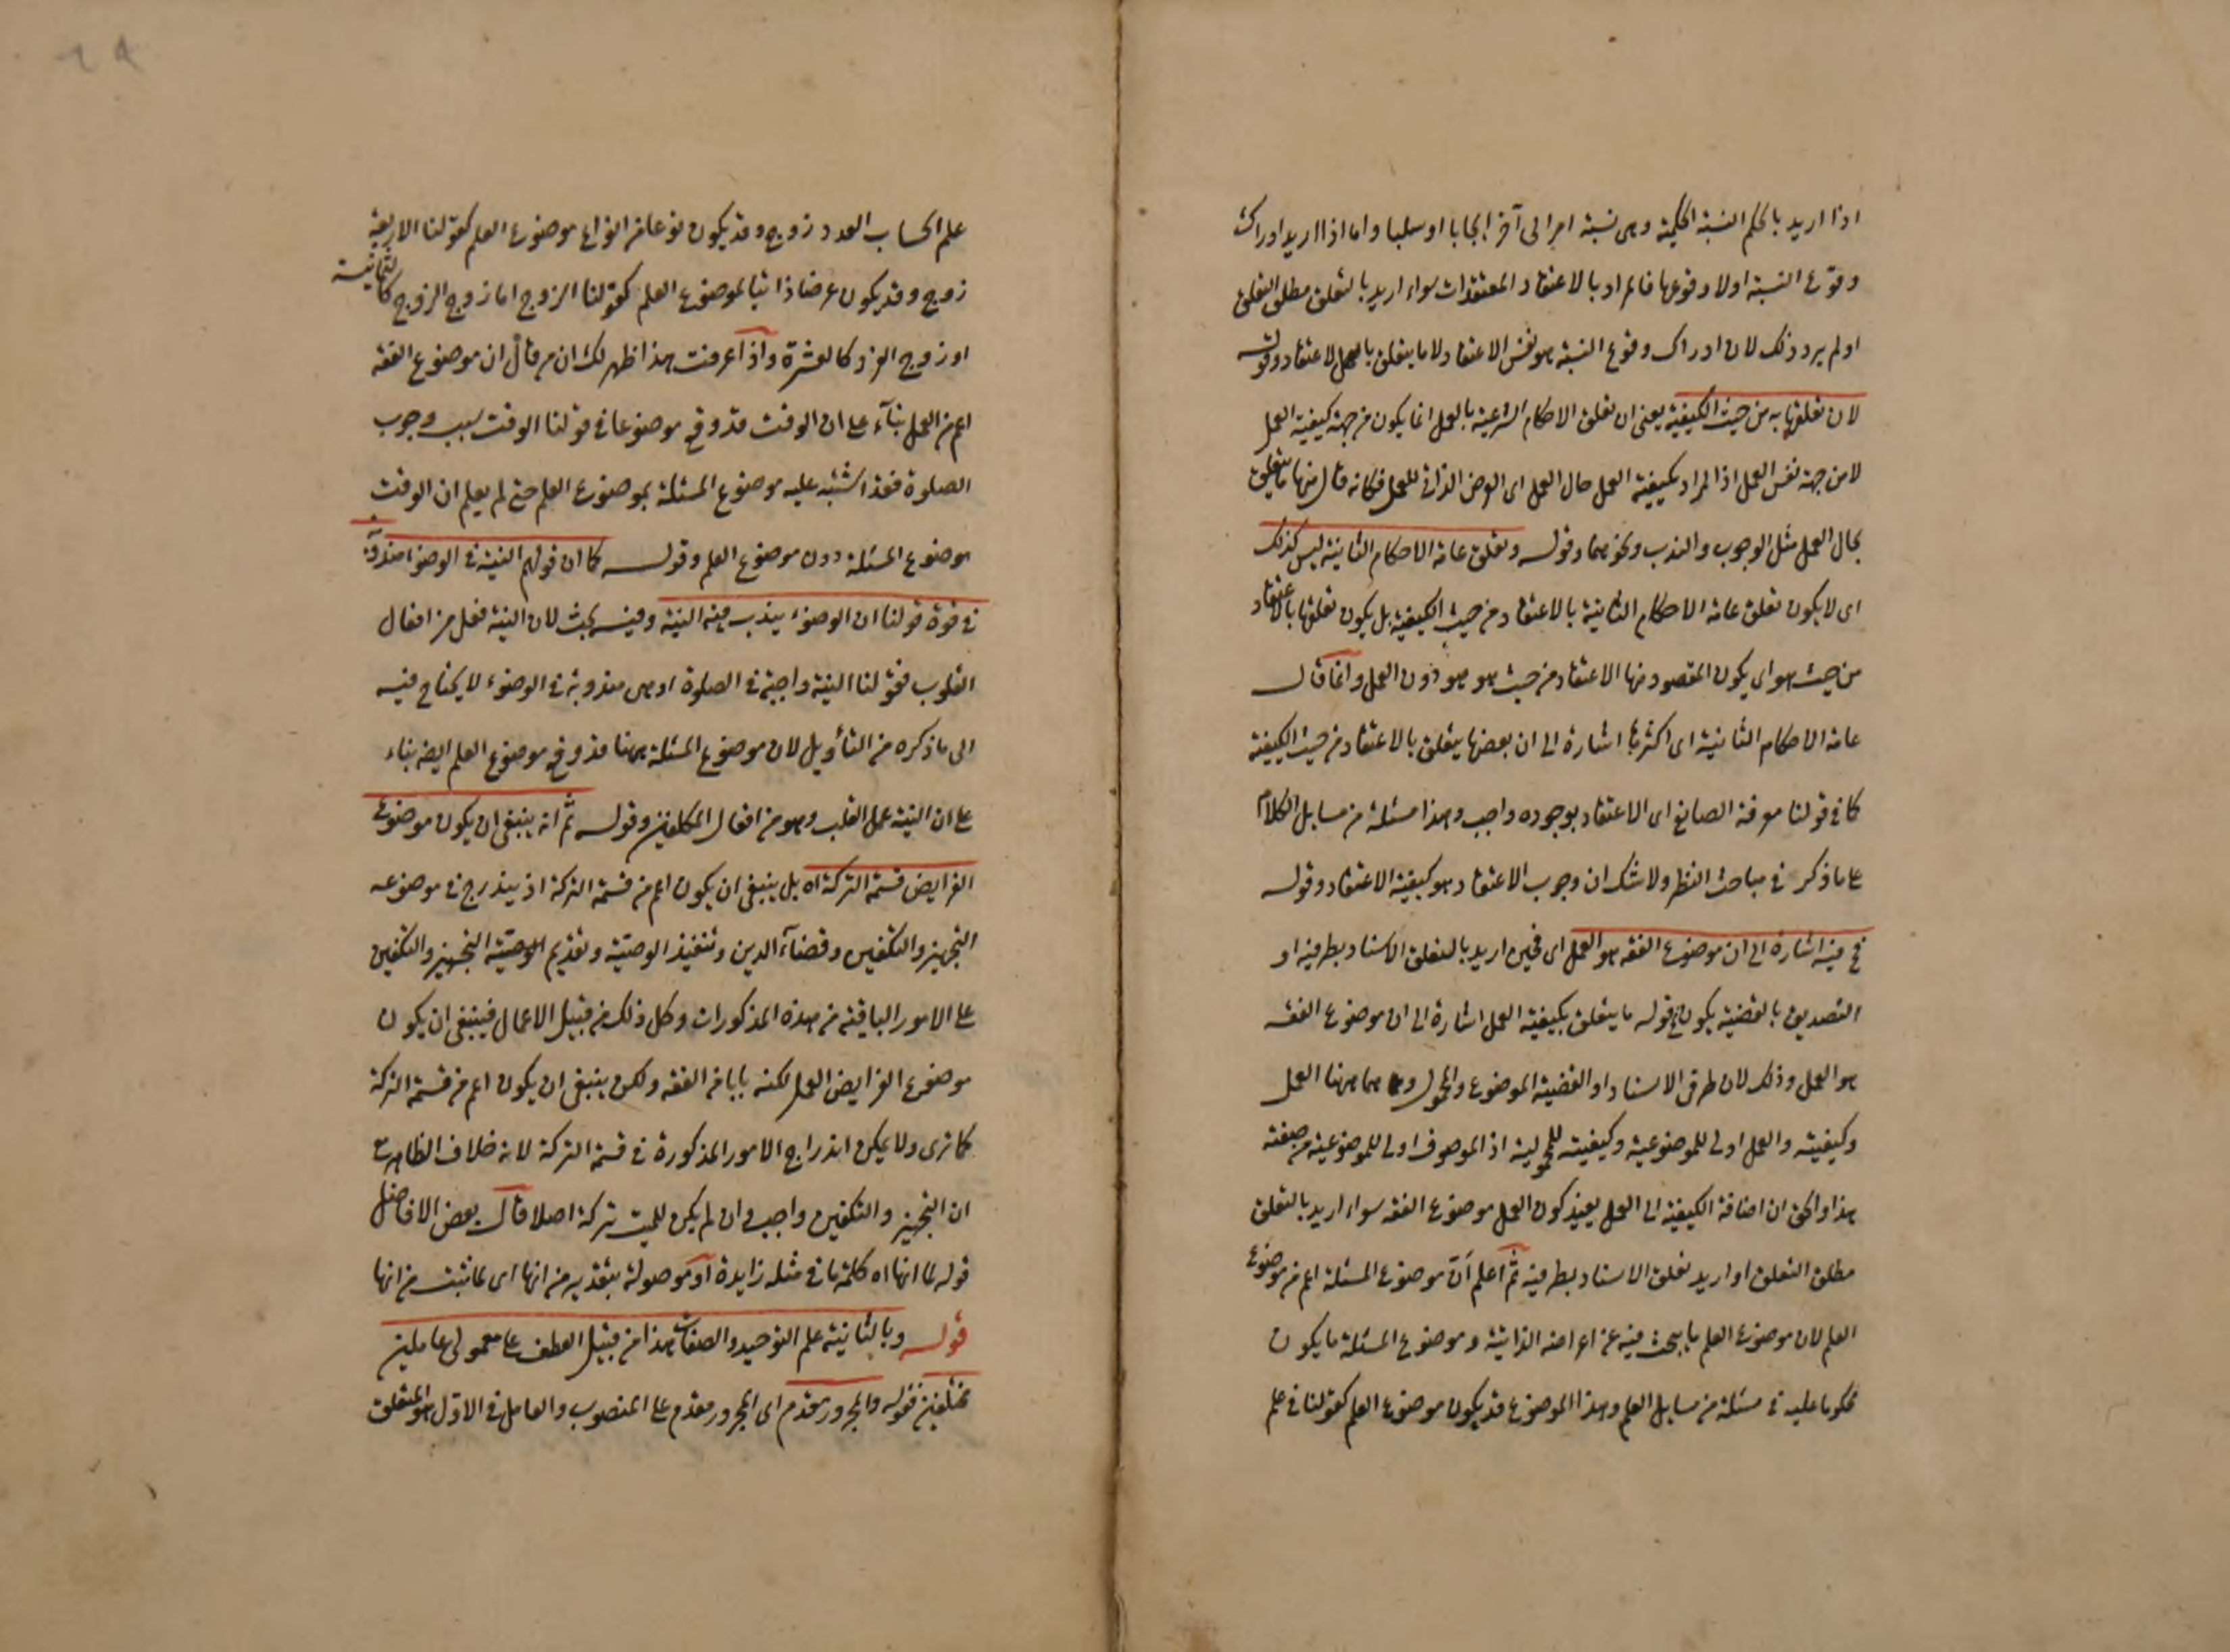 اذا اريد بالحكم النسبة الحكمية وهى نسبة امر الى آخر ايجابا او سلبا واما اذا اريد ادراك
وقوع النسبة او لا وقوعها فالمراد بالاعتقاد المعتقدات سواء اريد بالتعلق مطلق التعلق
او لم يرد ذلك لان ادراك وقوع النسبة هو نفس الاعتقاد لا ما يتعلق بالاعتقاد وقوله
لان تعلقها به من حيث الكيفية يعنى ان تعلق الاحكام الشرعية بالعمل انما يكون من جهة كيفية العمل
لا من جهة نفس العمل اذ المراد بكيفية العمل حال العمل اى العرض الذاتى للعمل فكانه قال منها ما يتعلق
بحال العمل مثل الوجوب والندب ونحوهما وقوله وتعلق عامة الاحكام الثانية ليس كذلك
اى لا يكون تعلق عامة الاحكام الثانية بالاعتقاد من حيث الكيفية بل يكون تعلقها بالاعتقاد
من حيث هو اى يكون المقصود منها الاعتقاد من حيث هو هو دون العمل وانما قال
عامة الاحكام الثانية اى اكثرها اشارة الى ان بعضها يتعلق بالاعتقاد من حيث الكيفية
كما فى قولنا معرفة الصانع اى الاعتقاد بوجوده واجب وهذا مسئلة من مسايل الكلام
على ما ذكر فى مباحث النظر ولا شك ان وجوب الاعتقاد هو كيفية الاعتقاد وقوله
فح فيه اشارة الى ان موضوع الفقه هو العمل اى فحين اريد بالتعلق الاسناد بطرفيه او
التصديق بالقضية يكون فى قوله ما يتعلق بكيفية العمل اشارة الى ان موضوع الفقه
هو العمل وذلك لان طرفى الاسناد او القضية الموضوع والمحمول وهما ههنا العمل
وكيفيته والعمل اولى للموضوعية وكيفيته للمحمولية اذ الموصوف اولى للموضوعية من صفته
هذا والحق ان اضافة الكيفية الى العمل يفيد كون العمل موضوع الفقه سواء اريد بالتعلق
مطلق التعلق او اريد تعلق الاسناد بطرفيه ثم اعلم ان موضوع المسئلة اعم من موضوع
العلم لان موضوع العلم ما يبحث فيه عن اعراضه الذاتية وموضوع المسئلة ما يكون
محكوما عليه فى مسئلة من مسايل العلم وهذا الموضوع قد يكون موضوع العلم كقولنا فى علم
علم الحساب العدد زوج وقد يكون نوعا من انواع موضوع العلم كقولنا الاربعة
زوج وقد يكون عرضا ذاتيا لموضوع العلم كقولنا الزوج اما زوج الزوج كالثمانية
او زوج الفرد كالعشرة واذا عرفت هذا ظهر لك ان من قال ان موضوع الفقه
اعم من العمل بناء على ان الوقت قد وقع موضوعا فى قولنا الوقت سبب وجوب
الصلوة فقد اشتبه عليه موضوع المسئلة بموضوع العلم حتى لم يعلم ان الوقت
موضوع المسئلة دون موضوع العلم وقوله كما ان قولهم النية فى الوضوء مندوبة
فى قوة قولنا ان الوضوء يندب فيه النية وفيه بحث لان النية فعل من افعال
القلوب فقولنا النية واجبة فى الصلوة او هى مندوبة فى الوضوء لا يحتاج فيه
الى ما ذكره من التأويل لان موضوع المسئلة ههنا قد وقع موضوع العلم ايضا بناء
على ان النية عمل القلب وهو من افعال المكلفين وقوله ثم انه ينبغى ان يكون موضوع
الفرايض قسمة التركة اه بل ينبغى ان يكون اعم من قسمة التركة اذ يندرج فى موضوعه
التجهيز والتكفين وقضاء الدين وتنفيذ الوصية وتقديم التجهيز والتكفين
على الامور الباقية من هذه المذكورات وكل ذلك من قبيل الاعمال فينبغى ان يكون
موضوع الفرايض العمل لكنه بابا من الفقه ولكن ينبغى ان يكون اعم من قسمة التركة
كما ترى ولا يمكن اندراج الامور المذكورة فى قسمة التركة لانه خلاف الظاهر مع
ان التجهيز والتكفين واجب وان لم يكن للميت تركة اصلا قال بعض الافاضل
قوله لما انها اه كلمة ما فى مثله زايدة او موصولة بتقدير من انها اى لما ثبت من انها
قوله وبالثانية علم التوحيد والصفات هذا من قبيل العطف على معمولى عاملين
مختلفين فقوله والمجرور مقدم اى المجرور مقدم على المنصوب والعامل فى الاول هو المتعلق